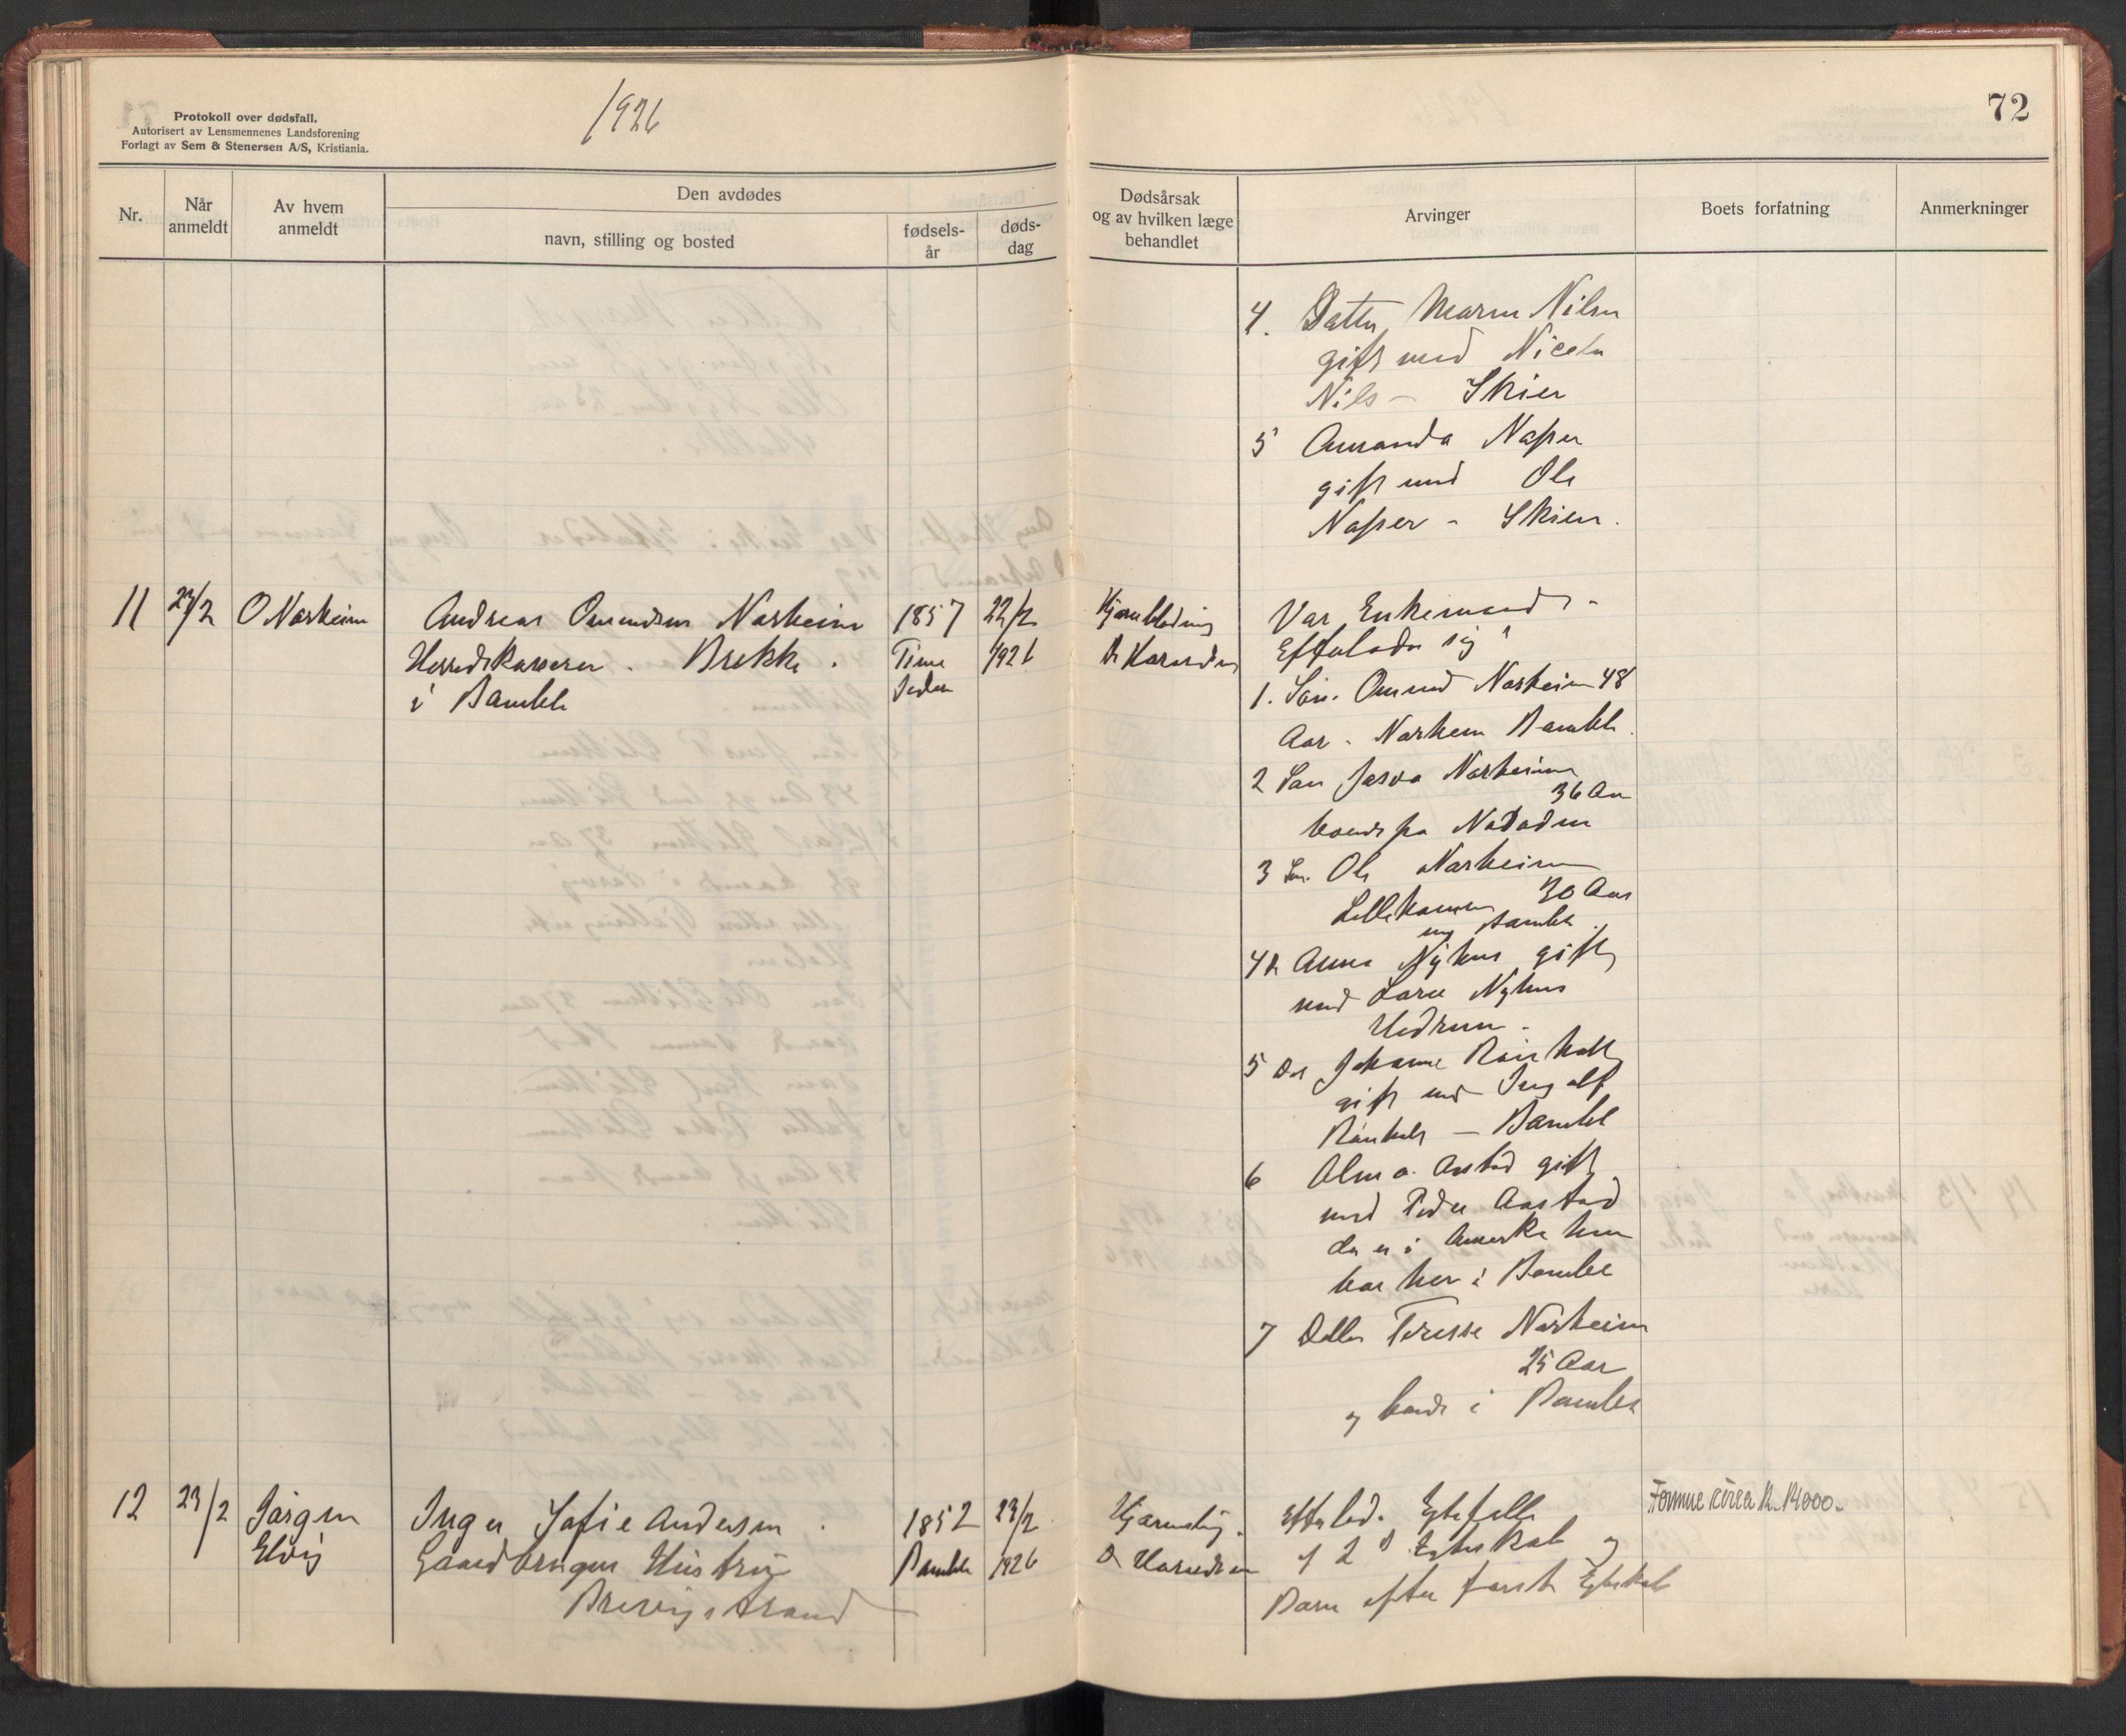 Protokoll over dødsfall.
Autorisert av Lensmennenes Landsforening
Forlagt av Sem & Stenersen A/S, Kristiania.
1926
72
Nr.
Når anmeldt
Av hvem anmeldt
Den avdødes
navn, stilling og bosted
fødselsår
dødsdag
Dødsårsak og av hvilken læge behandlet
Arvinger
Boets forfatning
Anmerkninger
4. Datter Maren Nilsen
gift med
Nils - Skien
5 Amanda Nasser
gift med Ole
Nasser - Skien.
11 23/2 O Narheim Andreas Omundsen Narheim 1857 22/2
Herredskasserer. Brekke. Time 1926
i Bamble
Hjerneblødning
Dr
Var Enkemand -
Efterlader sig
1. Søn. Omund Narheim 48
Aar - Narheim Bamble.
2 Søn Narheim
36 Aar
boende paa Notodden
3 Søn. Ole Narheim
30 Aar
Bamble.
4 Anna Nyhus gift
med Nyhus
Hedrum -
5 Johanne
gift med Ingolf
- Bamble
6 Alma Aastad gift
med Peder Aastad
der er i Amerika hun
bor her i Bamble
7 Datter Terese Narheim
25 Aar
boende i Bamble
12 23/2 Jørgen Inger Sofie Andersen. 1852 23/2
Elvig Gaardbruger Hustru Bamble 1926
Brevigstrand
Dr
Efterlod. Egtefelle
i 2d Egteskab og
Barn efter første Egteskab
Formue circa kr. 14000.-